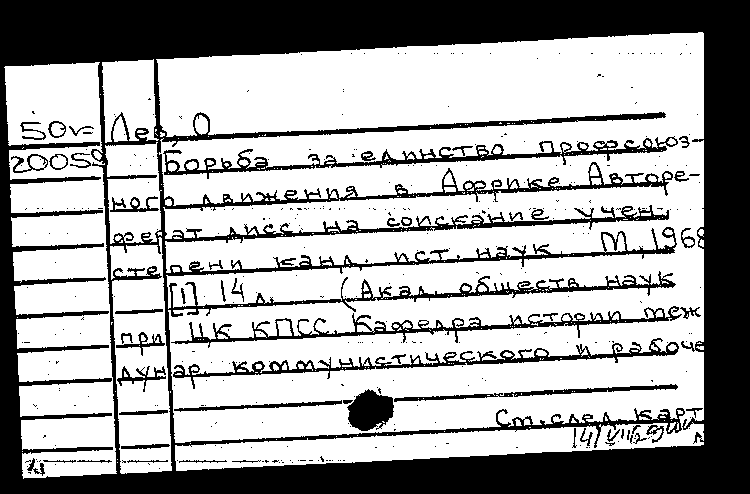 50v= Лев, О
20059 Борьба за единство профсоюз-
ного движения в Африке. Авторе-
ферат дисс. на соискание учен.
степени канд. ист. наук. М., 1968
[1], 14 л. (Акад. обществ. наук
при ЦК КПСС. Кафедра истории меж
дунар. коммунистического и рабоче
См. след. карт